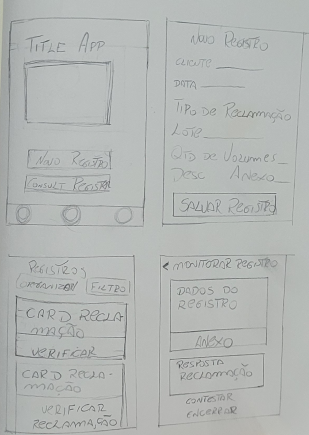 TITLE APP
NOVO REGISTRO
CONSULT REGISTRO
NOVO REGISTRO
CLIENTE
DATA
TIPO DE RECLAMAÇÃO
LOTE
QTD DE VOLUMES
DESC ANEXO
SALVAR REGISTRO
REGISTROS
ORGANIZAR FILTRO
CARD RECLA-
MAÇÃO
VERIFICAR
CARD RECLA-
MAÇÃO
VERIFICAR
RECLAMAÇÃO
< MONITORAR REGISTRO
DADOS DO
REGISTRO
ANEXO
RESPOSTA
RECLAMAÇÃO
CONTESTAR
ENCERRAR